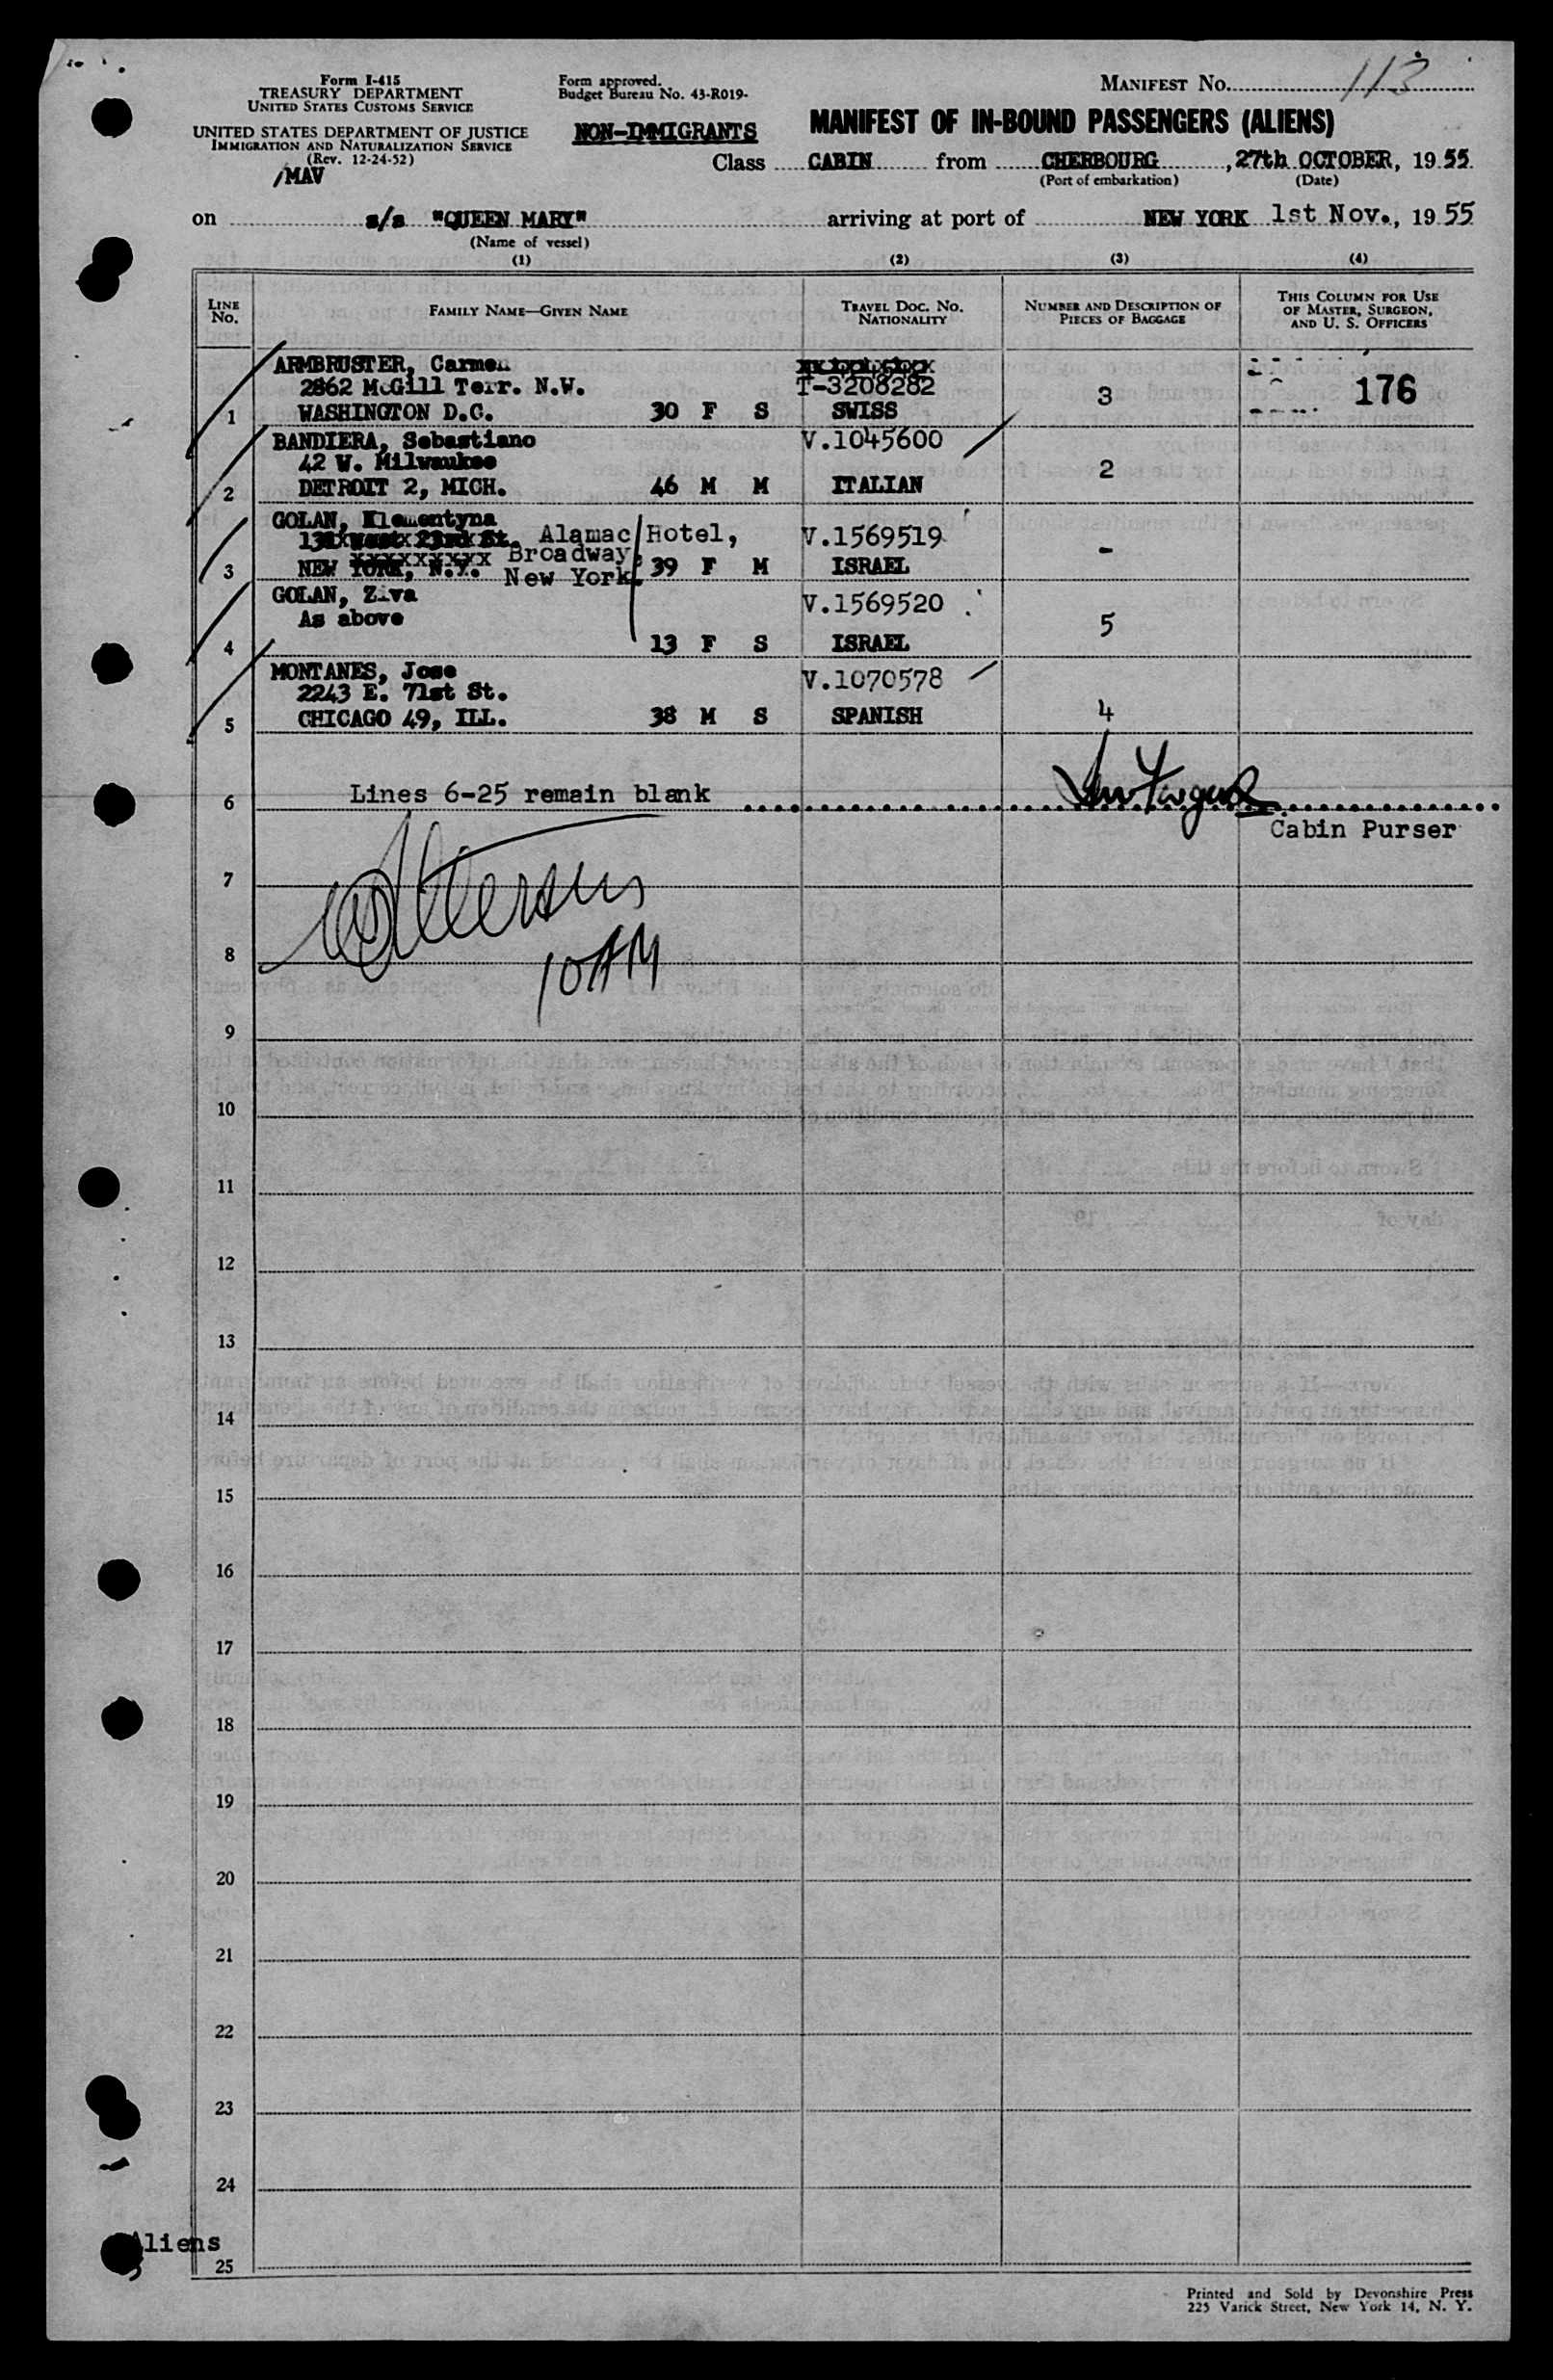 Form I-415
TREASURY DEPARTMENT
UNITED STATES CUSTOMS SERVICE
UNITED STATES DEPARTMENT OF JUSTICE
IMMIGRATION AND NATURALIZATION SERVICE
(Rev. 12-24-52)
/MAV
Form approved.
Budget Bureau No. 43-R019-
NON-IMMIGRANTS
MANIFEST NO. 113
MANIFEST OF IN-BOUND PASSENGERS (ALIENS)
Class CABIN from CHERBOURG, 27th OCTOBER, 1955
(Port of embarkation) (Date)
on s/s "QUEEN MARY" arriving at port of NEW YORK 1st Nov., 1955
(Name of vessel)
(1) (2) (3) (4)
LINE NO. FAMILY NAME—GIVEN NAME TRAVEL DOC. NO. NATIONALITY NUMBER AND DESCRIPTION OF PIECES OF BAGGAGE THIS COLUMN FOR USE OF MASTER, SURGEON, AND U. S. OFFICERS
ARMBRUSTER, Carmen
2862 McGill Terr. N.W. T-3208282 3 176
1 WASHINGTON D.C. 30 F S SWISS
BANDIERA, Sebastiano V.1045600
42 W. Milwaukee 2
2 DETROIT 2, MICH. 46 M M ITALIAN
GOLAN, Klementyna
131 West 23rd St. Alamac Hotel, V.1569519 -
Broadway
3 NEW YORK, N.Y. New York. 39 F M ISRAEL
GOLAN, Ziva V.1569520
As above 5
4 13 F S ISRAEL
MONTANES, Jose V.1070578
2243 E. 71st St.
5 CHICAGO 49, ILL. 38 M S SPANISH 4
6 Lines 6-25 remain blank
Cabin Purser
7
8
10AM
9
10
11
12
13
14
15
16
17
18
19
20
21
22
23
24
Aliens
25
Printed and Sold by Devonshire Press
225 Varick Street, New York 14, N. Y.